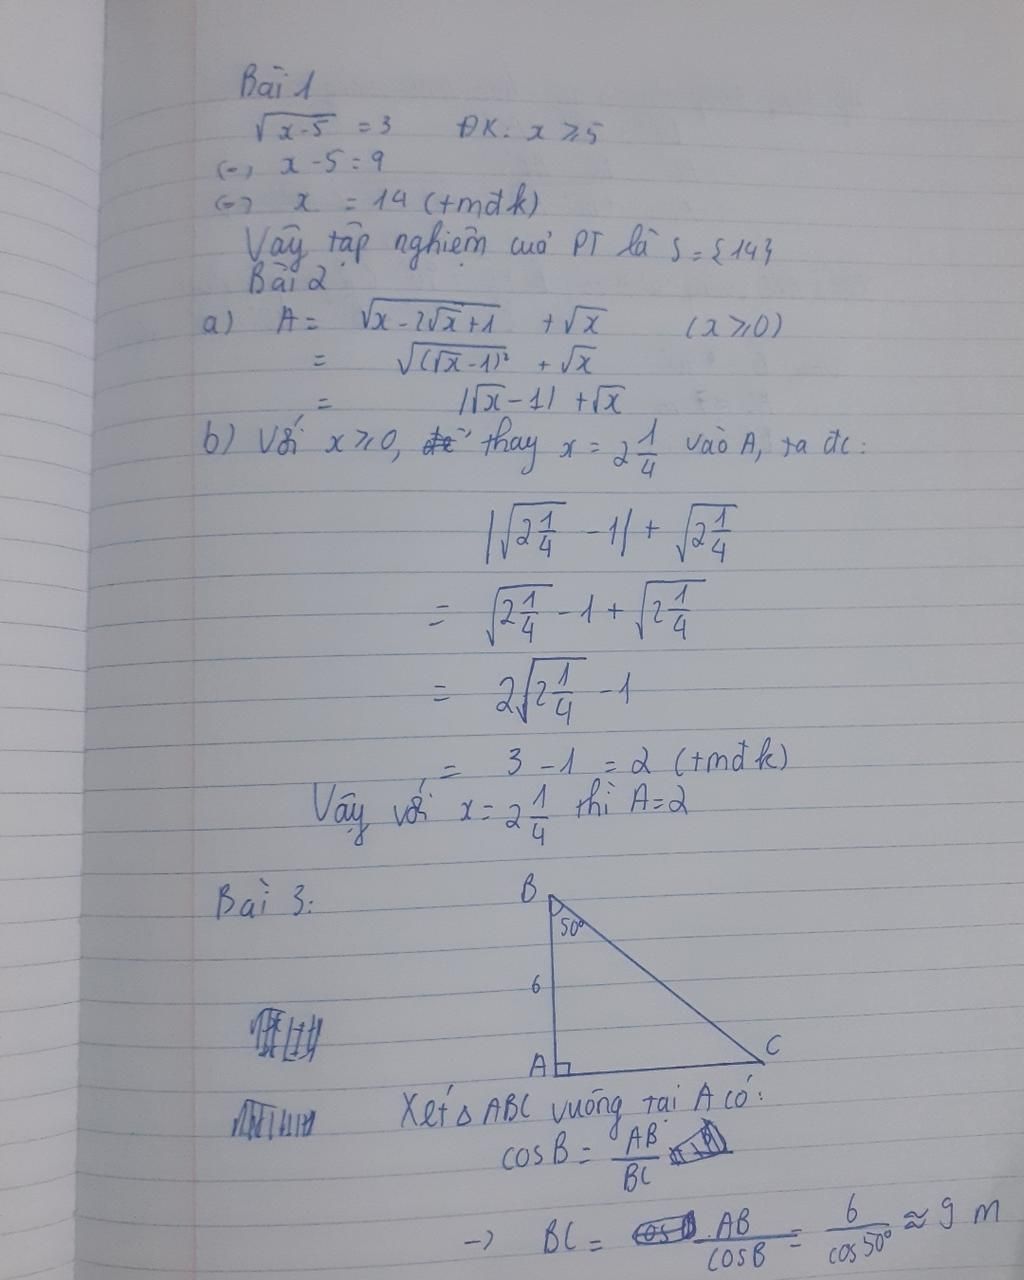 Bài 1
√(x-5) = 3 ĐK: x ≥ 5
(=) x - 5 = 9
(=) x = 14 (+mđk)
Vậy tập nghiệm cuả PT là S = {14}
Bài 2
a) A = √(x - 2√x + 1) + √x (x ≥ 0)
= √((√x - 1)²) + √x
= |√x - 1| + √x
b) Với x ≥ 0, thay x = 2 1/4 vào A, ta đc:
|√(2 1/4) - 1| + √(2 1/4)
= √(2 1/4) - 1 + √(2 1/4)
= 2√(2 1/4) - 1
= 3 - 1 = 2 (+mđk)
Vậy với x = 2 1/4 thì A = 2
Bài 3:
B
50°
6
A
C
Xét △ ABC vuông tại A có:
cos B = AB/BC
→ BC = AB/cosB = 6/cos 50° ≈ 9 m